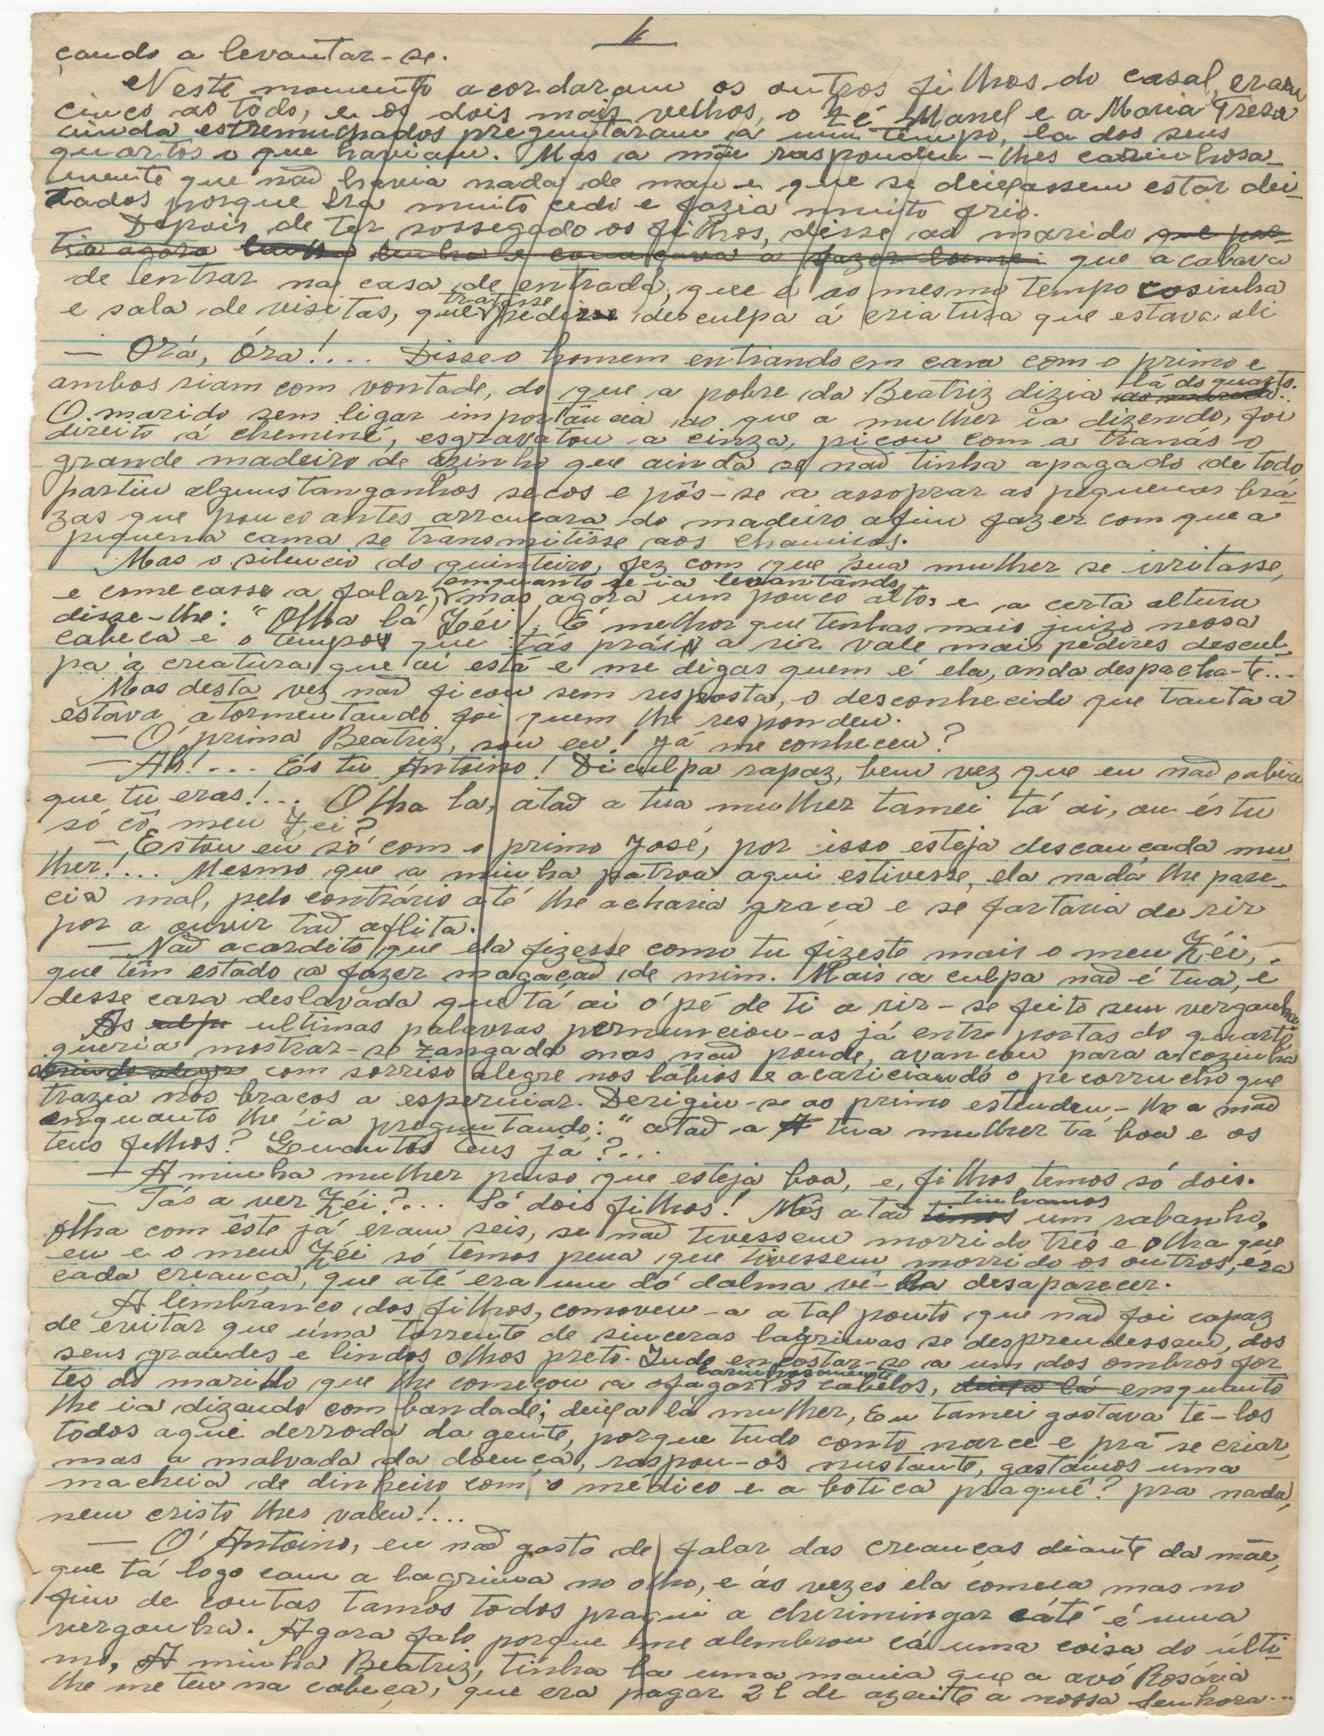 4
çando a levantar-se.
Neste momento acordaram os outros filhos do casal, eram
cinco ao todo, e os dois mais velhos, o Zé Manel e a Maria Treza
ainda estremunhados preguntaram a um tempo, la dos seus
quartos o que haviam. Mas a mãe raspondeu-lhes carinhosa-
mente que não havia nada de mau e que se deixassem estar dei-
tados porque era muito cedo e fazia muito frio.
Depois de ter sossegado os filhos, disse ao marido
que acabava
de entrar na casa de entrada, que é ao mesmo tempo cosinha
e sala de visitas, que tratasse pedir desculpa á creatura que estava ali
— Órá, Óra!... Disse o homem entrando em cara com o primo e
ambos riam com vontade, do que a pobre da Beatriz dizia lá do quarto.
O marido sem ligar importância ao que a mulher ia dizendo, foi
direito á cheminé, esgravatou a cinza, picou com a tranás o
grande madeiro de azinho que ainda se não tinha apagado de todo
partiu alguns tanganhos secos e pôs-se a assoprar as pequenas brá-
zas que pouco antes arrancara do madeiro afim fazer com que a
pequena cama se transmitisse aos chamiços.
Mas o silencio do quinteiro, fez com que sua mulher se irritasse,
e comecasse a falar, emquanto se ia levantando, mas agora um pouco alto, e a certa altura
disse-lhe: "Olha lá Zéi! É melhor que tenhas mais juizo nessa
cabeça e o tempo que tás práií a rir vale mais pedires descul-
pa á creatura que aí está e me digas quem é ela, anda despacha-te...
Mas desta vez não ficou sem resposta, o desconhecido que tanto a
estava atormentando foi quem lhe respondeu.
— Ó prima Beatriz, sou eu! Já me conheceu?
— Ah!... És tu Antoino! Diculpa rapaz, bem vez que eu não sabia
que tu eras!... Olha la, atão a tua mulher tamei tá ai, ou és tu
só cô meu Zei?
— Estou eu só com o primo José, por isso esteja descançada mu-
lher!... Mesmo que a minha patroa aqui estivesse, ela nada lhe pare-
cia mal, pelo contrário até lhe acharia graca e se fartaria de rir
por a ouvir tão aflita.
— Não acardito que ela fizesse como tu fizeste mais o meu Zéi,
que têm estado a fazer magação de mim. Mais a culpa não é tua, é
desse cara deslavada que tá ai ó pé de ti a rir-se feito sem vergonha
As ultimas palavras pernunciou-as já entre portas do quarto
queria mostrar-se zangada mas não poude, avancou para a cozinha
com sorriso alegre nos lábios e acariciando o pecorrucho que
trazia nos bracos a espernear. Derigiu-se ao primo estendeu-lhe a mão
enquanto lhe ia preguntando: "atão a tua mulher tá boa e os
teus filhos? Quantos tens já?...
— A minha mulher penso que esteja boa, e, filhos temos só dois.
— Tás a ver Zéi?... Só dois filhos! Nós atão tinhamos um rabanho,
olha com êste já eram seis, se não tivessem morrido três e olha que
eu e o meu Zéi só temos pena que tivessem morrido os outros, éra
cada creança, que até era um dó dalma vê-la desaparecer.
A lembranço dos filhos, comoveu-a a tal ponto que não foi capaz
de evitar que uma torrente de sinceras lagrimas se desprendessem, dos
seus grandes e lindos olhos preto. Indo encostar-se a um dos ombros for
tes do marido que lhe começou a afagar carinhosamente os cabelos, emquanto
lhe ia dizendo com bandade; deixa lá mulher, Eu tamei gostava tê-los
todos aqui derroda da gente, porque tudo conto narce e prá se criar,
mas a malvada da doença, raspou-os nustante, gastámos uma
macheia de dinheiro com o médico e a botica praquê? pra nada,
nem cristo lhes valeu!...
— Ó Antoino, eu não gosto de falar das creanças diante da mãe,
que tá logo cam a lagrima no olho, e ás vezes ela comeca mas no
fim de contas tamos todos praqui a cherimingar cáté é uma
vergonha. Agora falo porque me alembrou cá uma coisa do últi-
mo, A minha Beatriz, tinha lá uma mania que a avó Rosária
lhe meteu na cabeça, que era pagar 2 l de azeite a nossa senhora...